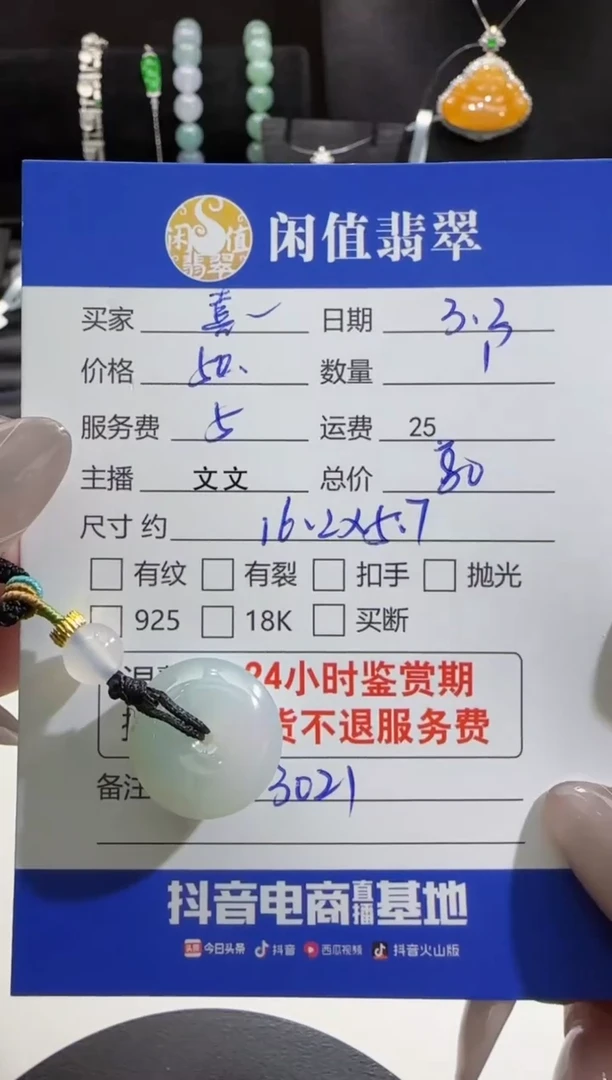 闲值翡翠
闲值翡翠
买家 喜一 日期 3.3
价格 50. 数量 1
服务费 5 运费 25
主播 文文 总价 80
尺寸 约 16.2x5.7
有纹 有裂 扣手 抛光
925 18K 买断
24小时鉴赏期
货不退服务费
备注 3021
抖音电商直播基地
头条 今日头条 抖音 西瓜视频 抖音火山版